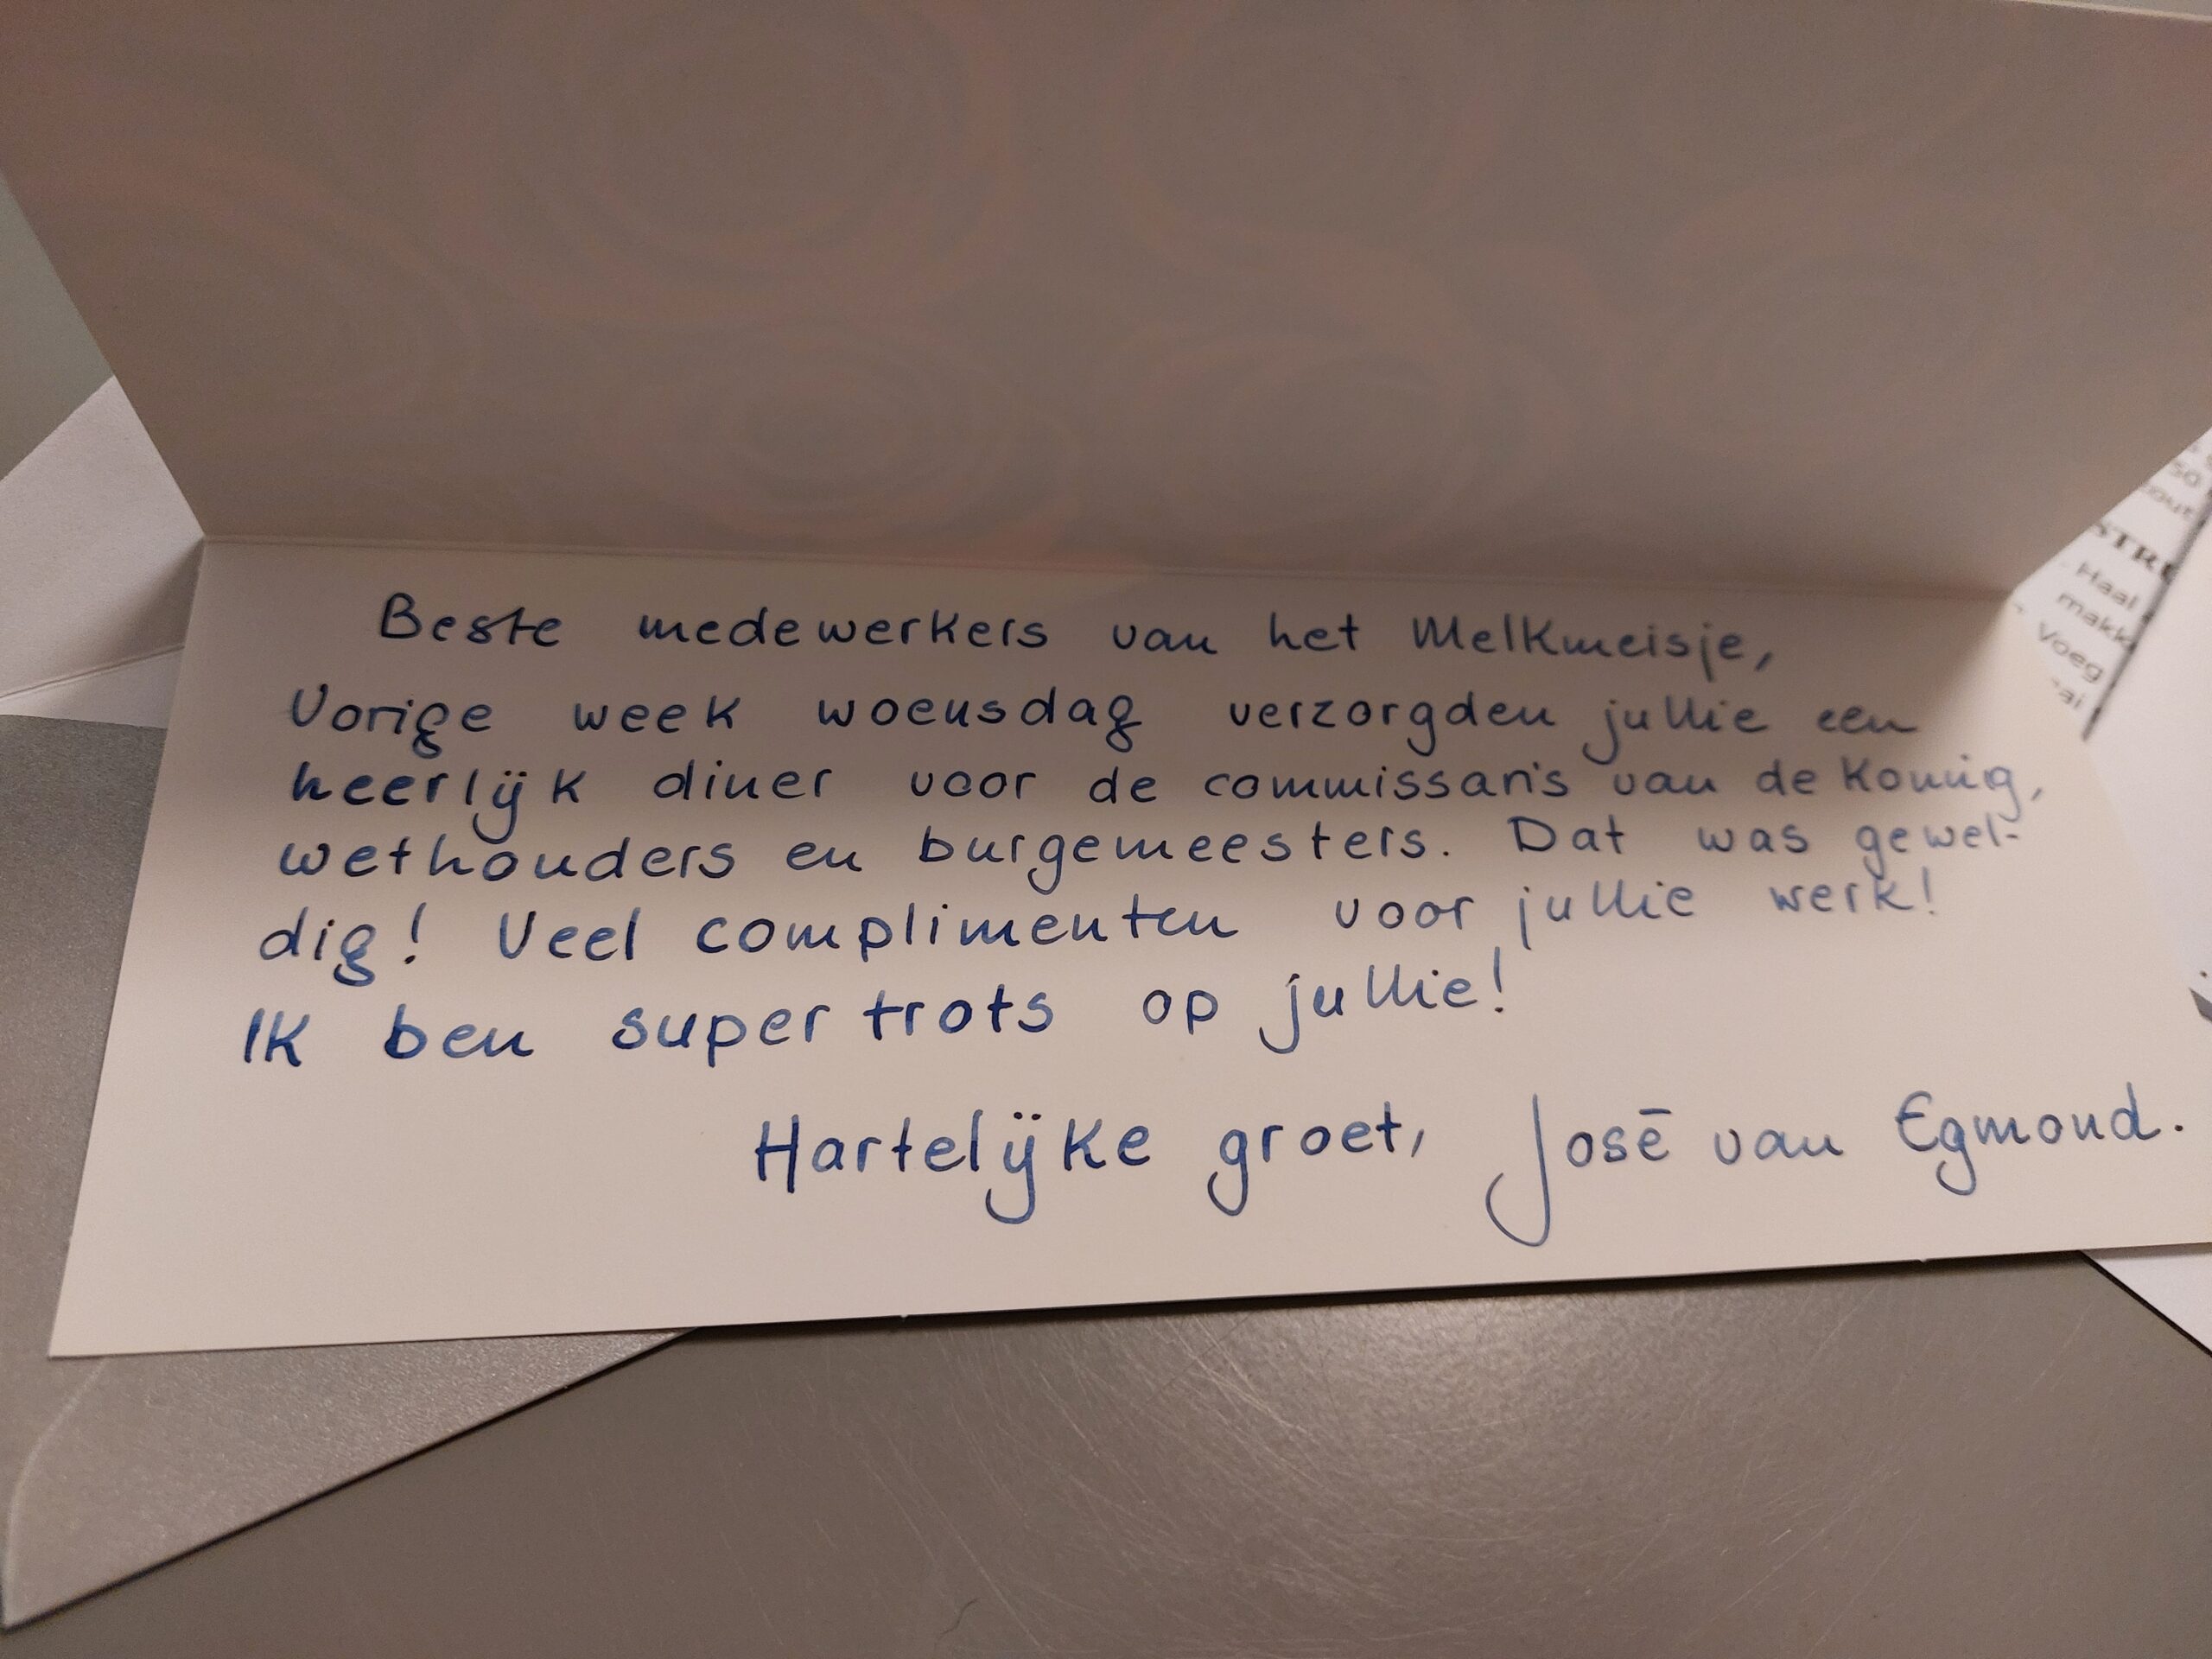 Beste medewerkers van het Melkmeisje,
Vorige week woensdag verzorgden jullie een
heerlijk diner voor de commissaris van de Koning,
wethouders en burgemeesters. Dat was gewel-
dig! Veel complimenten voor jullie werk!
Ik ben super trots op jullie!
Hartelijke groet, José van Egmond.
Haal
Voeg